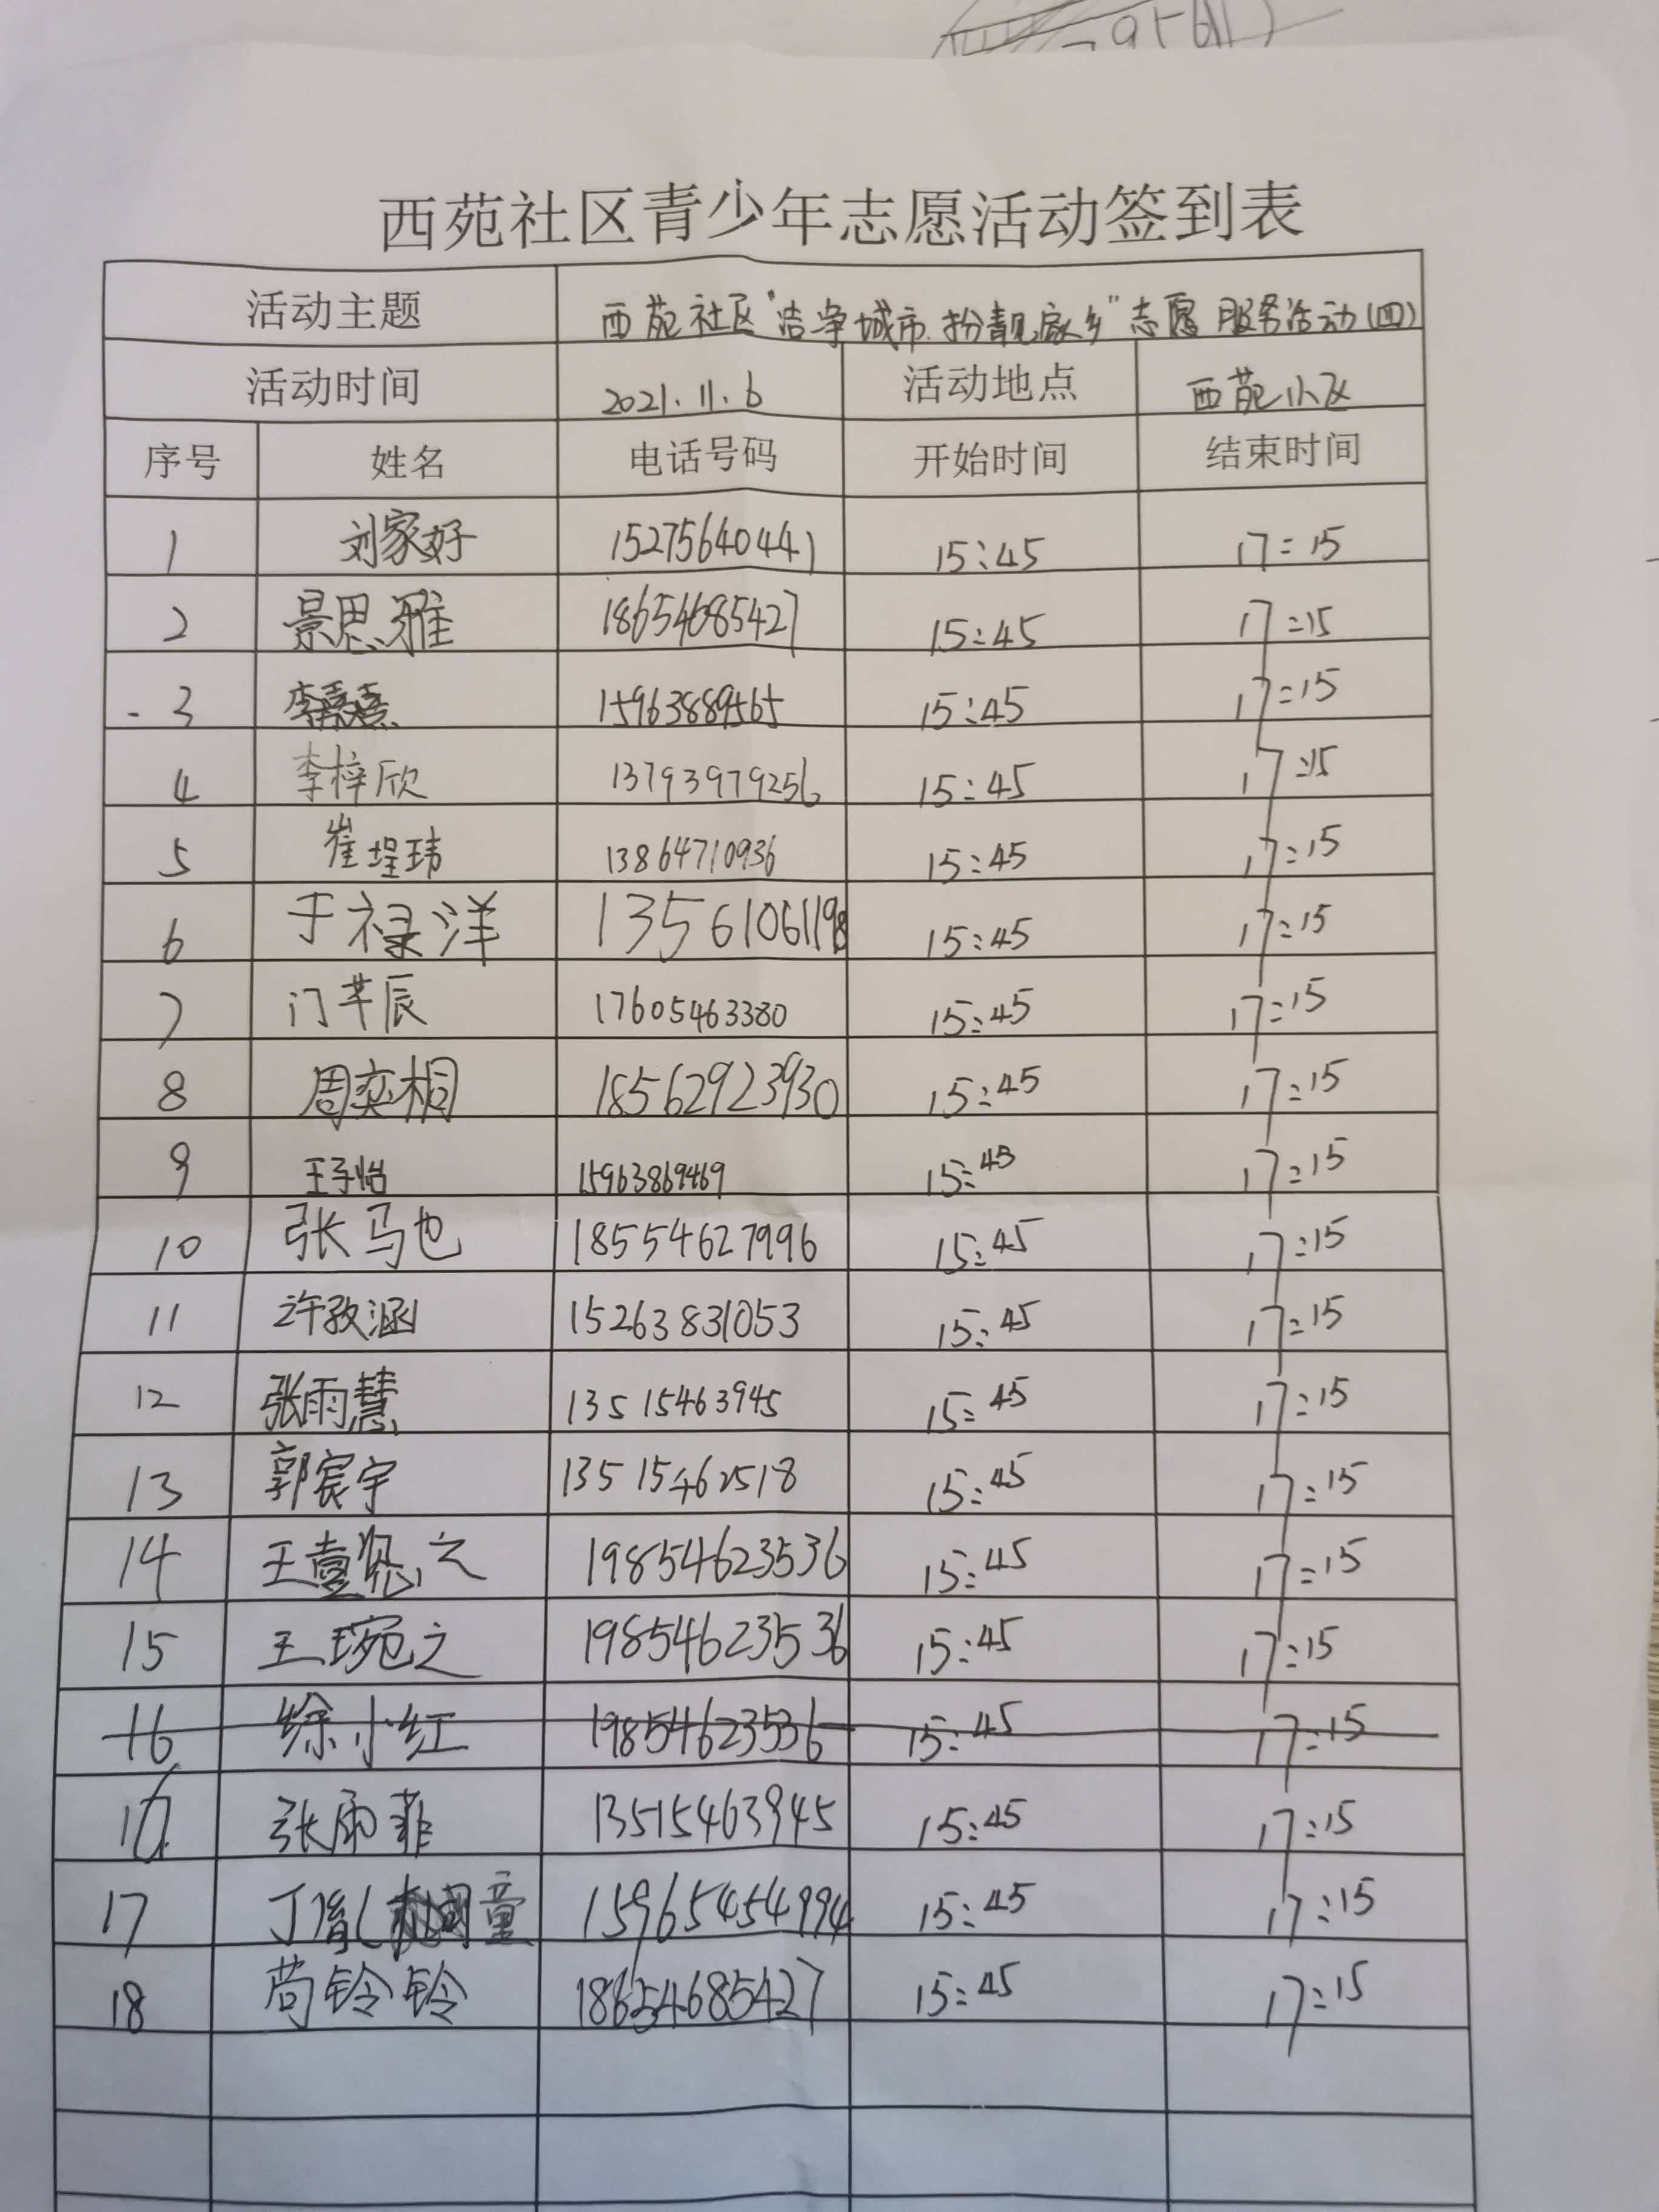 西苑社区青少年志愿活动签到表
活动主题 西苑社区"洁净城市.扮靓家乡"志愿服务活动(四)
活动时间 2021.11.6 活动地点 西苑小区
序号 姓名 电话号码 开始时间 结束时间
1 刘家好 15275640441 15:45 17:15
2 景思雅 18654685427 15:45 17:15
3 李熹熹 15963889565 15:45 17:15
4 李梓欣 13793979256 15:45 17:15
5 崔埕玮 13864710936 15:45 17:15
6 于禄洋 13561061198 15:45 17:15
7 门芊辰 17605463380 15:45 17:15
8 周奕桐 18562923930 15:45 17:15
9 王子怡 15963869469 15:45 17:15
10 张马也 18554627996 15:45 17:15
11 许孜涵 15263831053 15:45 17:15
12 张雨慧 13515463945 15:45 17:15
13 郭宸宇 13515462518 15:45 17:15
14 王壹之 19854623536 15:45 17:15
15 王琬之 19854623536 15:45 17:15
16 徐小红 19854623536 15:45 17:15
16 张雨菲 13515463945 15:45 17:15
17 丁胤童 15965454994 15:45 17:15
18 苘铃铃 18654685427 15:45 17:15